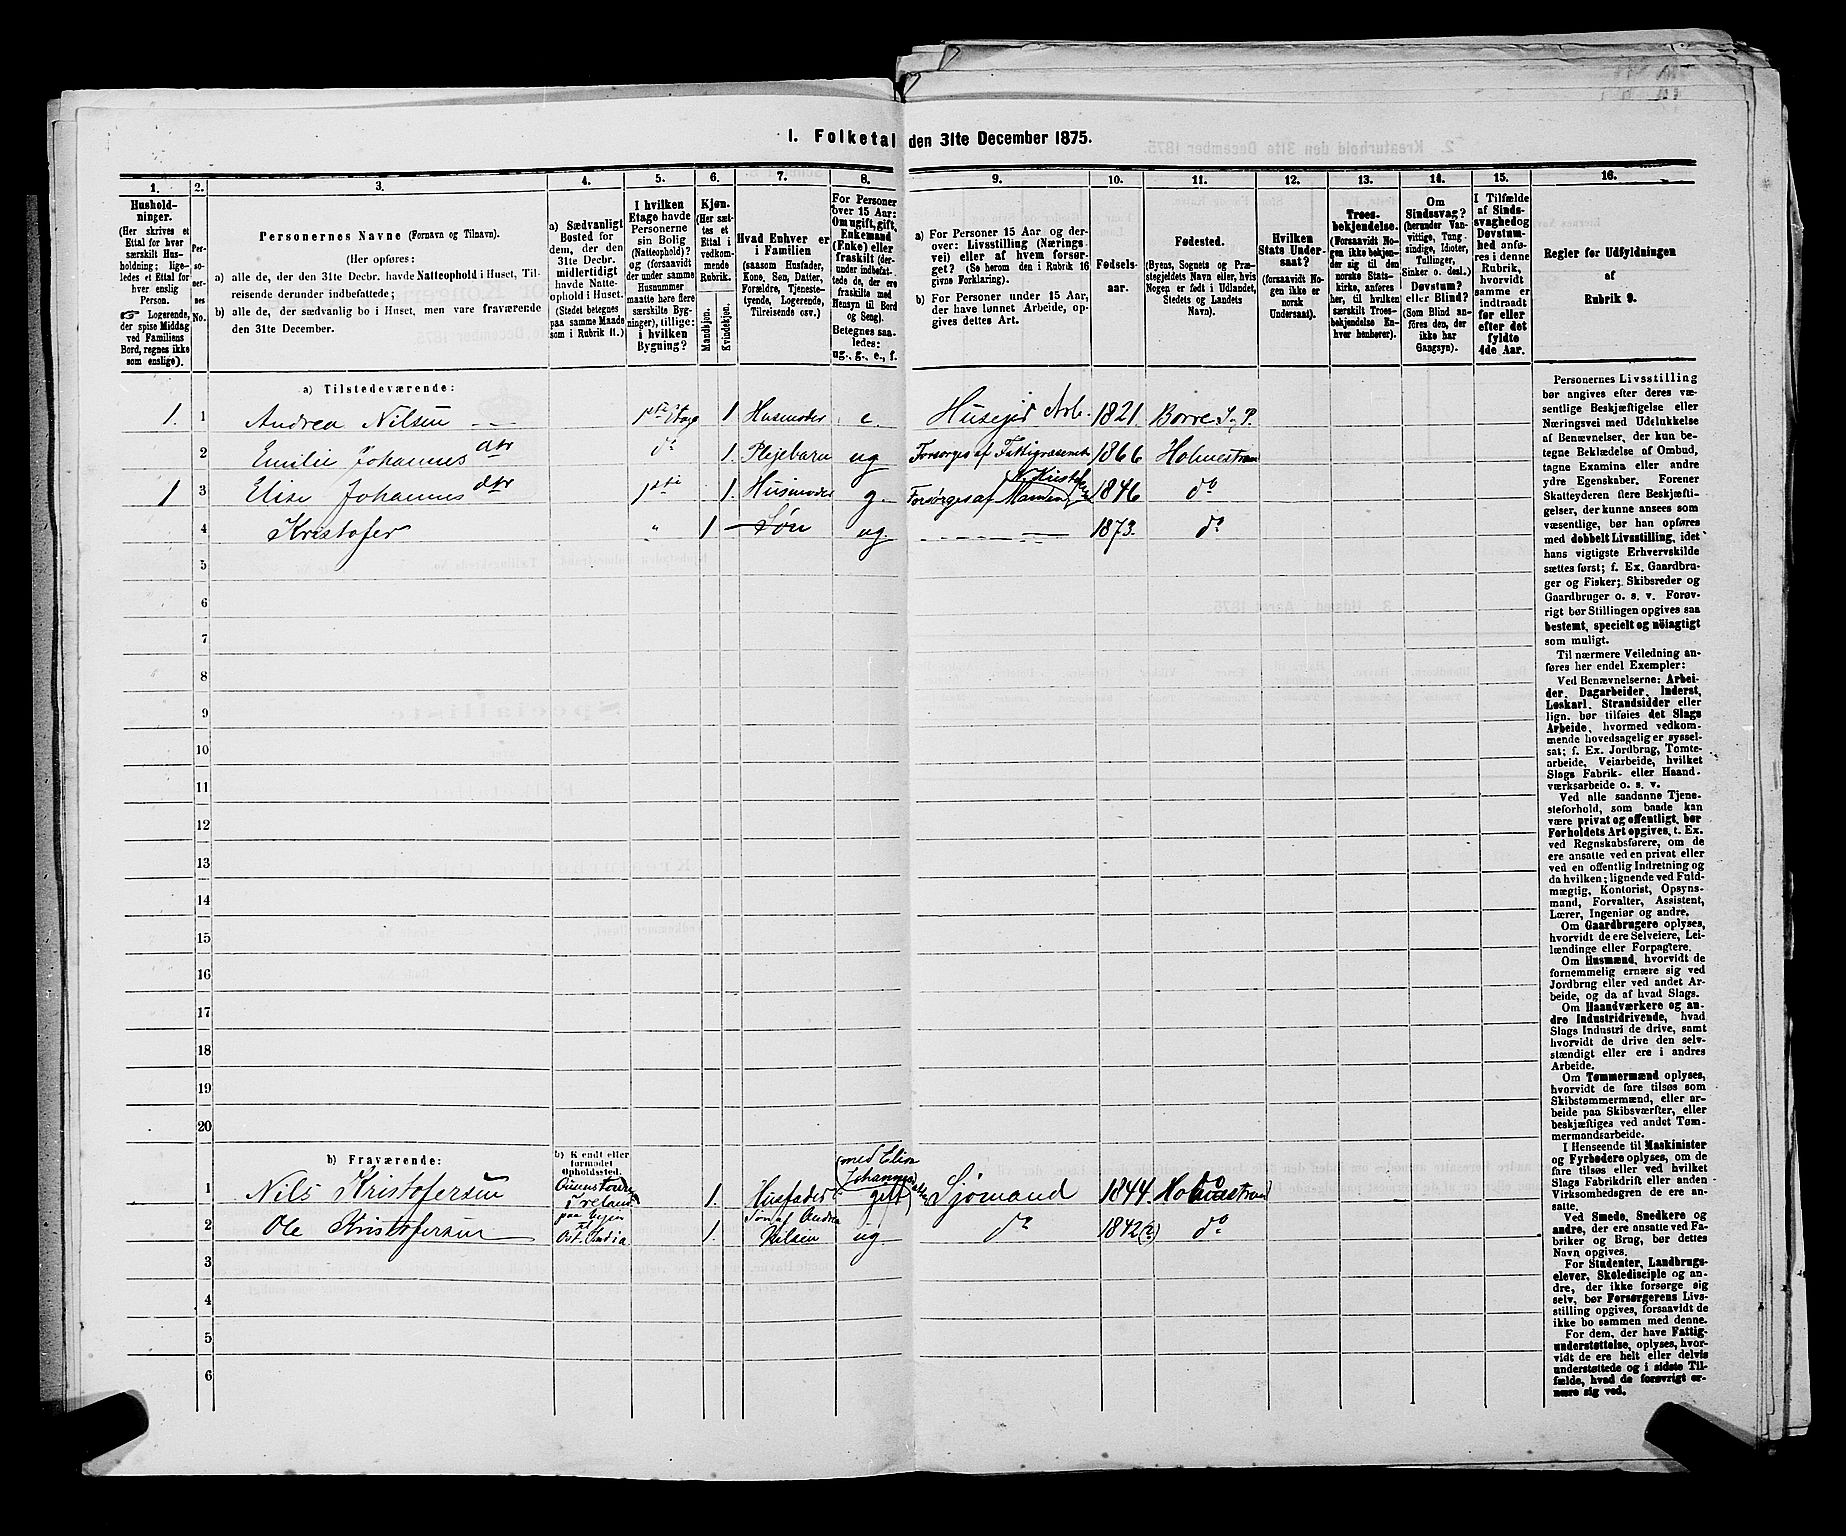 1. Folketal den 31te December 1875.
1. 2. 3. 4. 5. 6. 7. 8. 9. 10. 11. 12. 13. 14. 15. 16.
Hushold-
ninger.
(Her skrives et
Ettal for hver
særskilt Hus-
holdning; lige-
ledes et Ettal for
hver enslig
Person.
☞ Logerende,
der spise Middag
ved Familiens
Bord, regnes ikke
som enslige).
Per-
so-
ner-
nes
No.
Personernes Navne (Fornavn og Tilnavn).
(Her opføres:
a) alle de, der den 31te Decbr. havde Natteophold i Huset, Til-
reisende derunder indbefattede;
b) alle de, der sædvanlig bo i Huset, men vare fraværende
den 31te December.
a) Sædvanligt
Bosted for
dem, der den
31te Decbr.
midlertidigt
havde Natte-
ophold i Huset.
(Stedet betegnes
paa samme Maade
som i Rubrik 11.)
I hvilken
Etage havde
Personerne
sin Bolig
(Natteophold)?
og (forsaavidt
der under samme
Husnummer
maatte høre flere
særskilte Byg-
ninger), tillige:
i hvilken
Bygning?
Kjøn.
(Her sæt-
tes et
Ettal i
vedkom-
mende
Rubrik.
Mandkjøn.
Kvindekjøn.
Hvad Enhver er
i Familien
(saasom Husfader,
Kone, Søn, Datter,
Forældre, Tjeneste-
tyende, Logerende,
Tilreisende osv.)
For Personer
over 15 Aar:
Om ugift, gift,
Enkemand
(Enke) eller
fraskilt (der-
under indbefat-
tede de, der ere
fraskilte med
Hensyn til Bord
og Seng).
Betegnes saa-
ledes:
ug., g., e., f.
a) For Personer 15 Aar og der-
over: Livsstilling (Nærings-
vei) eller af hvem forsør-
get? (Se herom den i Rubrik 16
givne Forklaring).
b) For Personer under 15 Aar,
der have lønnet Arbeide, op-
gives dettes Art.
Fødsels-
aar.
Fødested.
(Byens, Sognets og Præ-
stegjeldets Navn eller, hvis
Nogen er født i Udlandet,
Stedets og Landets
Navn).
Hvilken
Stats Under-
saat?
(forsaavidt No-
gen ikke er
norsk
Undersaat).
Troes-
bekjendelse.
(Forsaavidt No-
gen ikke bekjen-
der sig til den
norske Stats-
kirke, anføres
her, til hvilken
særskilt Troes-
bekjendelse En-
hver henhører).
Om
Sindssvag?
(herunder Van-
vittige, Tung-
sindige, Idioter,
Tullinger,
Sinker o. desl.)
Døvstum?
eller Blind?
(Som Blind an-
føres den, der
ikke har
Gangsyn).
I Tilfælde
af Sinds-
svaghed og
Døvstum-
hed anfø-
res i denne
Rubrik,
hvorvidt
samme er
indtraadt
før eller
efter det
fyldte
4de Aar.
Regler for Udfyldningen
af
Rubrik 9.
a) Tilstedeværende:
1. 1 Andrea Nilsen 1ste Etage 1. Husmoder e. Husejer Arb. 1821. Borre S. P.
2 Emilie Johannesdtr do 1. Plejebarn ug Forsørges af Fattigvæsenet 1866 Holmestrand
1 3 Elise Johannesdtr 1ste 1. Husmoder g. Forsørges af Manden 1846 do
4 Kristofer " 1 Søn ug. 1873. do
5
6
7
8
9
10
11
12
13
14
15
16
17
18
19
20
b) Fraværende:
b) Kjendt eller
formodet
Opholdssted.
1 Nils Kristofersen Ireland 1. Husfader gift (med Elise Johannesdtr) Sjømand 1844. Holmestrand
2 Ole Kristofersen paa Rejsen til Ost. India 1. Søn af Andrea Nilsen ug do 1842(?) do
3
4
5
6
Personernes Livsstilling
bør angives efter deres væ-
sentlige Beskjæftigelse eller
Næringsvei med Udelukkelse
af Benævnelser, der kun be-
tegne Beklædelse af Ombud,
tagne Examina eller andre
ydre Egenskaber. Forener
Skatteyderen flere Beskjæfti-
gelser, der kunne ansees som
væsentlige, bør han opføres
med dobbelt Livsstilling, idet
hans vigtigste Erhvervskilde
sættes først; f. Ex. Gaardbru-
ger og Fisker; Skibsreder og
Gaardbruger o. s. v. Forøv-
rigt bør Stillingen opgives saa
bestemt, specielt og nöiagtigt
som muligt.
Til nærmere Veiledning an-
føres her endel Exempler:
Ved Benævnelserne: Arbei-
der, Dagarbeider, Inderst,
Løskarl, Strandsidder eller
lign. bør tilføies det Slags
Arbeide, hvormed vedkom-
mende hovedsagelig er syssel-
sat; f. Ex. Jordbrug, Tomte-
arbeide, Veiarbeide, hvilket
Slags Fabrik- eller Haand-
værksarbeide o. s. v.
Ved alle saadanne Tjene-
steforhold, som baade kan
være privat og offentligt, bør
Forholdets Art opgives, t. Ex.
ved Regnskabsførere, om de
ere ansatte ved en privat eller
ved en offentlig Indretning og
da hvilken; lignende ved Fuld-
mægtig, Kontorist, Opsyns-
mand, Forvalter, Assistent,
Lærer, Ingeniør og andre.
Om Gaardbrugere oplyses,
hvorvidt de ere Selveiere, Lei-
lændinge eller Forpagtere.
Om Husmænd, hvorvidt de
fornemmelig ernære sig ved
Jordbrug eller ved andet Ar-
beide, og da af hvad Slags.
Om Haandværkere og an-
dre Industridrivende, hvad
Slags Industri de drive, samt
hvorvidt de drive den selv-
stændigt eller ere i andres
Arbeide.
Om Tømmermænd oplyses,
hvorvidt de fare tilsøs som
Skibstømmermænd, eller ar-
beide paa Skibsværfter, eller
beskjæftiges ved andet Tøm-
mermandsarbeide.
I Henseende til Maskinister
og Fyrbødere oplyses, om de
fare tilsøs eller ved hvilket
Slags Fabrikdrift eller anden
Virksomhedsgren de ere an-
satte.
Ved Smede, Snedkere og
andre, der ere ansatte ved Fa-
briker og Brug, bør dettes
Navn opgives.
For Studenter, Landbrugs-
elever, Skoledisciple og an-
dre, der ikke forsørge sig
selv, bør Forsørgerens Livs-
stilling opgives, forsaavidt de
ikke bo sammen med denne.
For dem, der have Fattig-
understøttelse, oplyses, hvor-
vidt de ere helt eller delvis
understøttede og i sidste Til-
fælde, hvad de forøvrigt er-
nære sig ved.